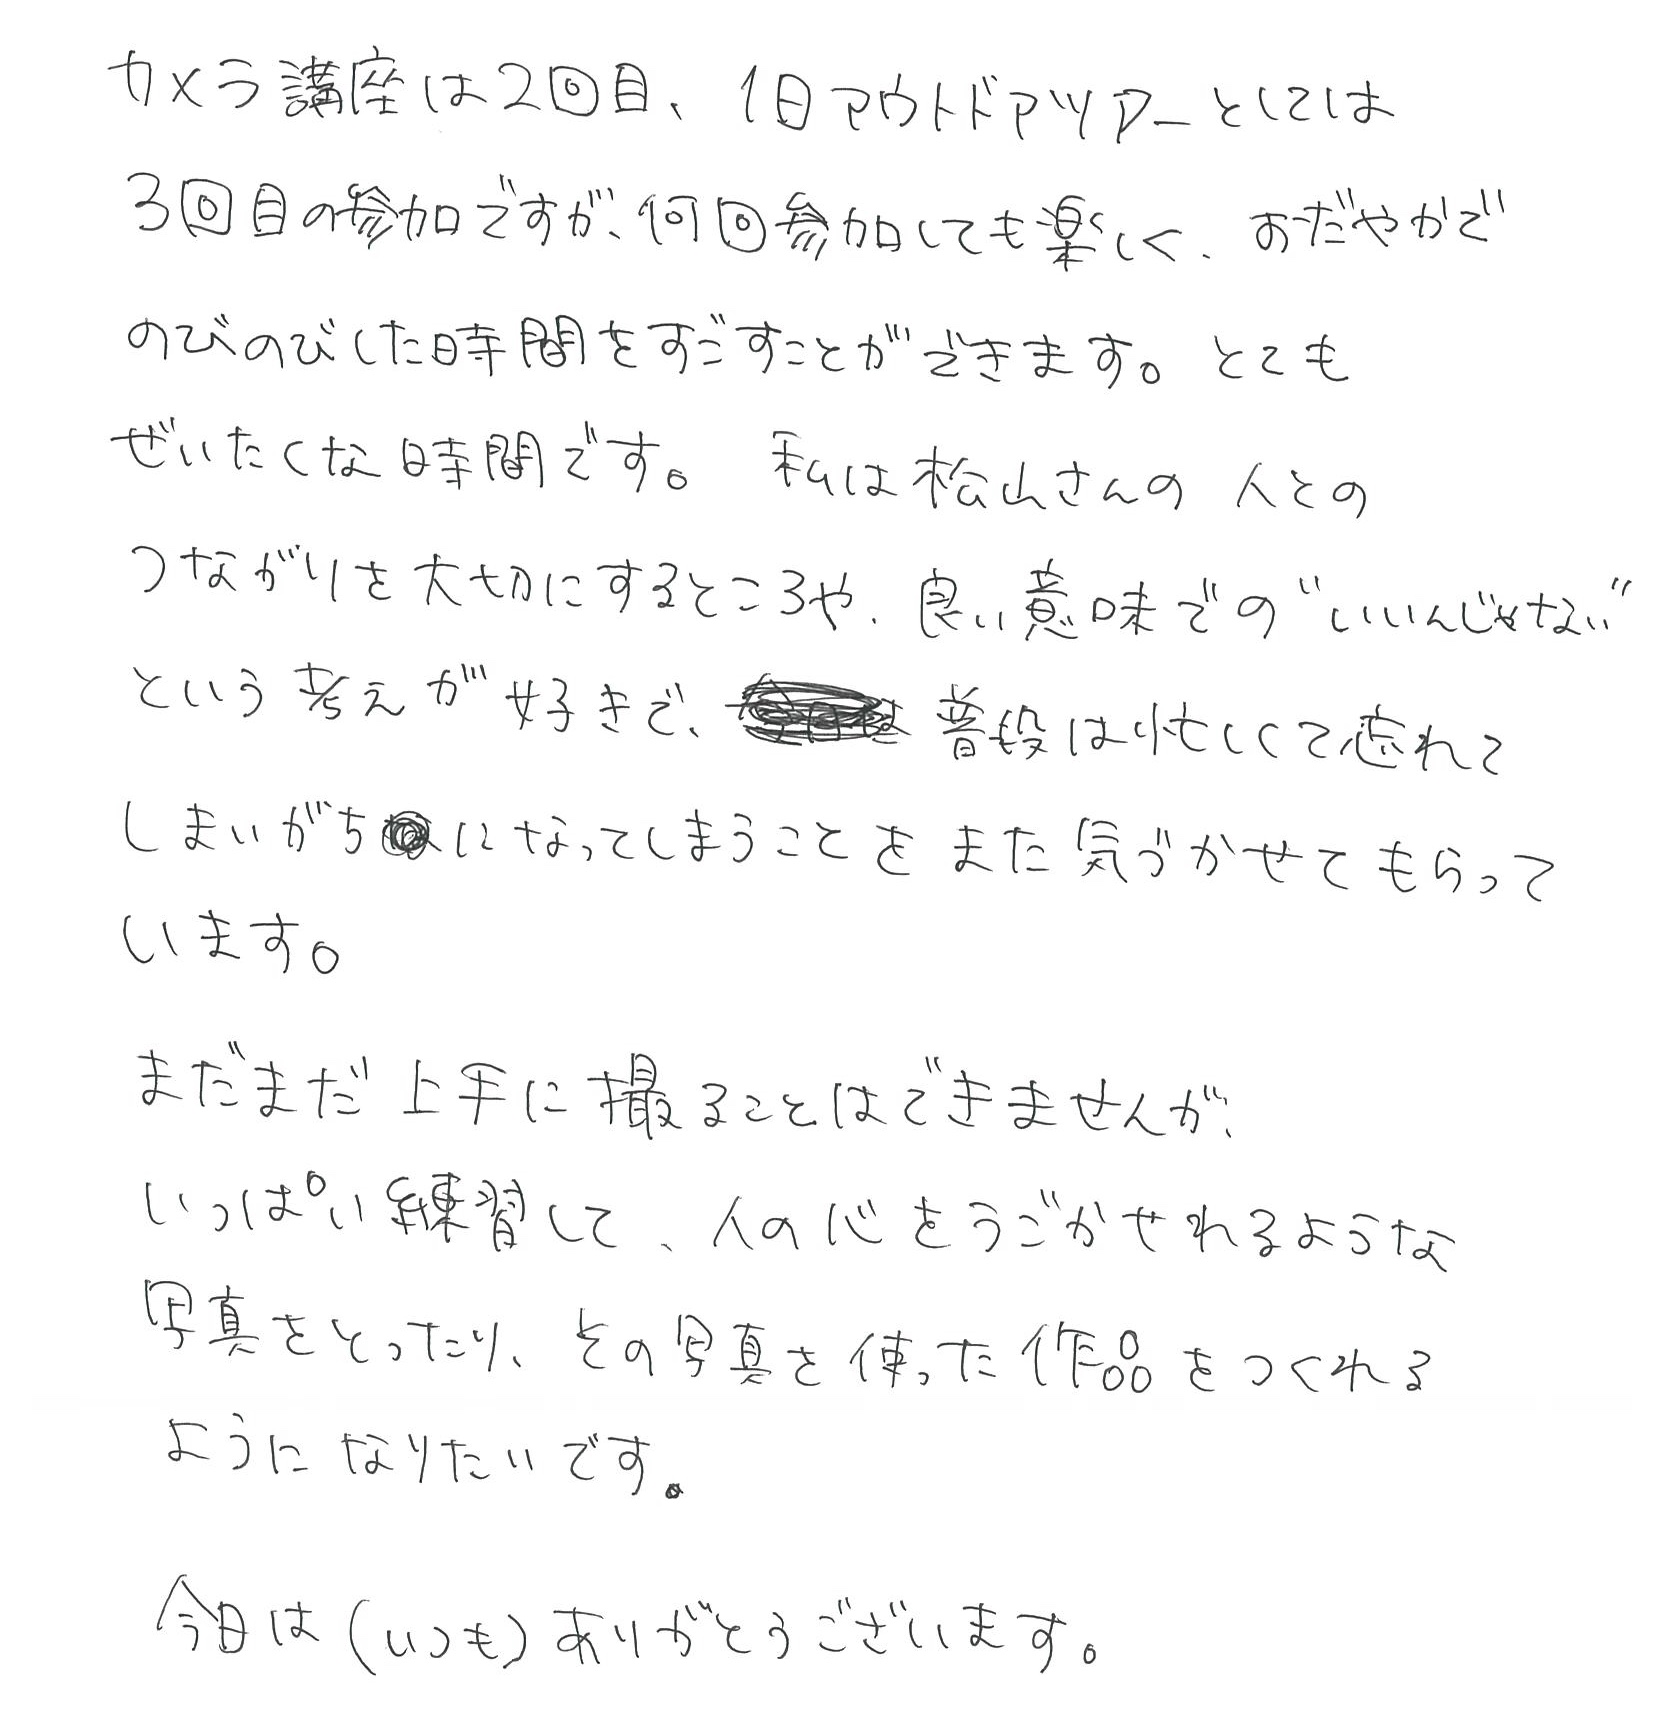 カメラ講座は2回目、1日アウトドアツアーとしては
3回目の参加ですが、何回参加しても楽しく、おだやかで
のびのびした時間をすごすことができます。とても
ぜいたくな時間です。 私は松山さんの人との
つながりを大切にするところや、良い意味での"いいんじゃない"
という考えが好きで、普段は忙しくて忘れて
しまいがちになってしまうことをまた気づかせてもらって
います。
まだまだ上手に撮ることはできませんが、
いっぱい練習して、人の心をうごかせれるような
写真をとったり、その写真を使った作品をつくれる
ようになりたいです。
今日は(いつも)ありがとうございます。